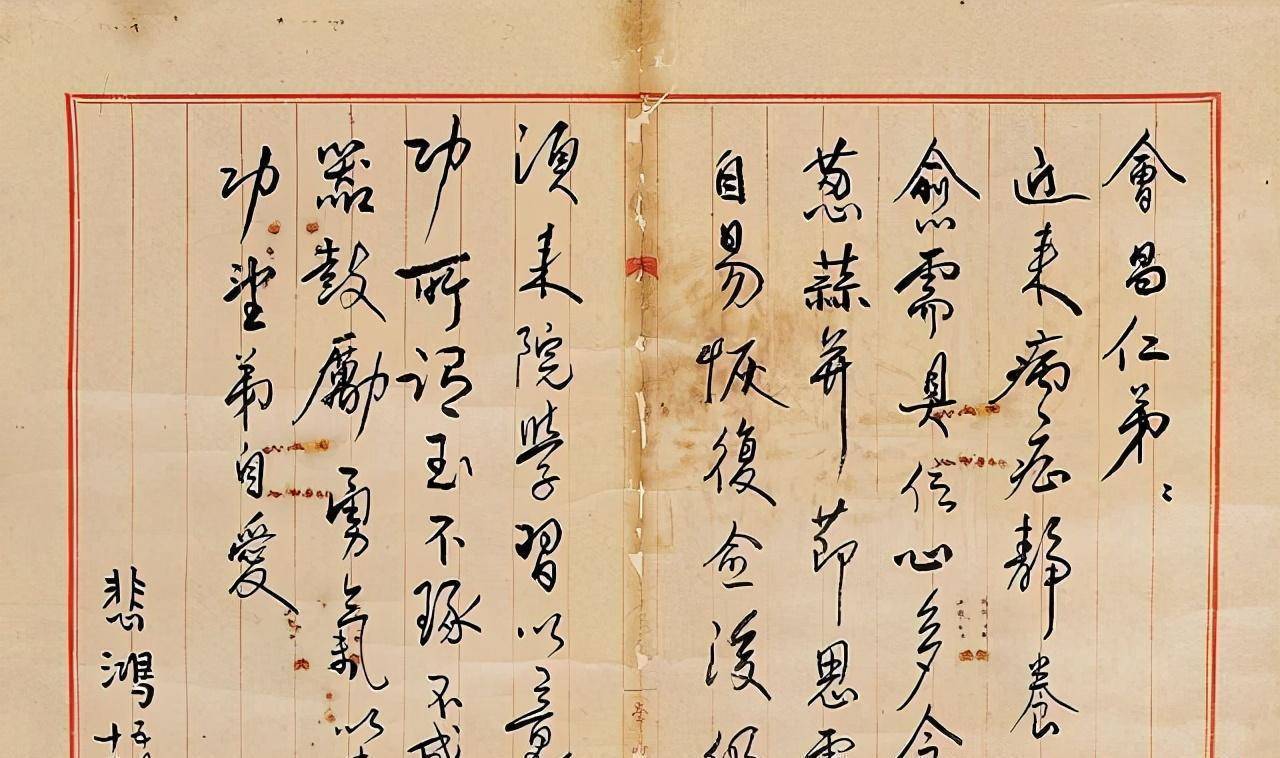 會昌仁弟：
近来病症靜養
愈需具信心多
葱蒜并節思
自易恢復愈後
須来院學習以竟
功所谓玉不琢不成
器鼓勵勇氣以
功望弟自愛
悲鴻